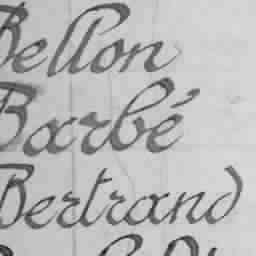 Bellon
Barbé
Bertrand